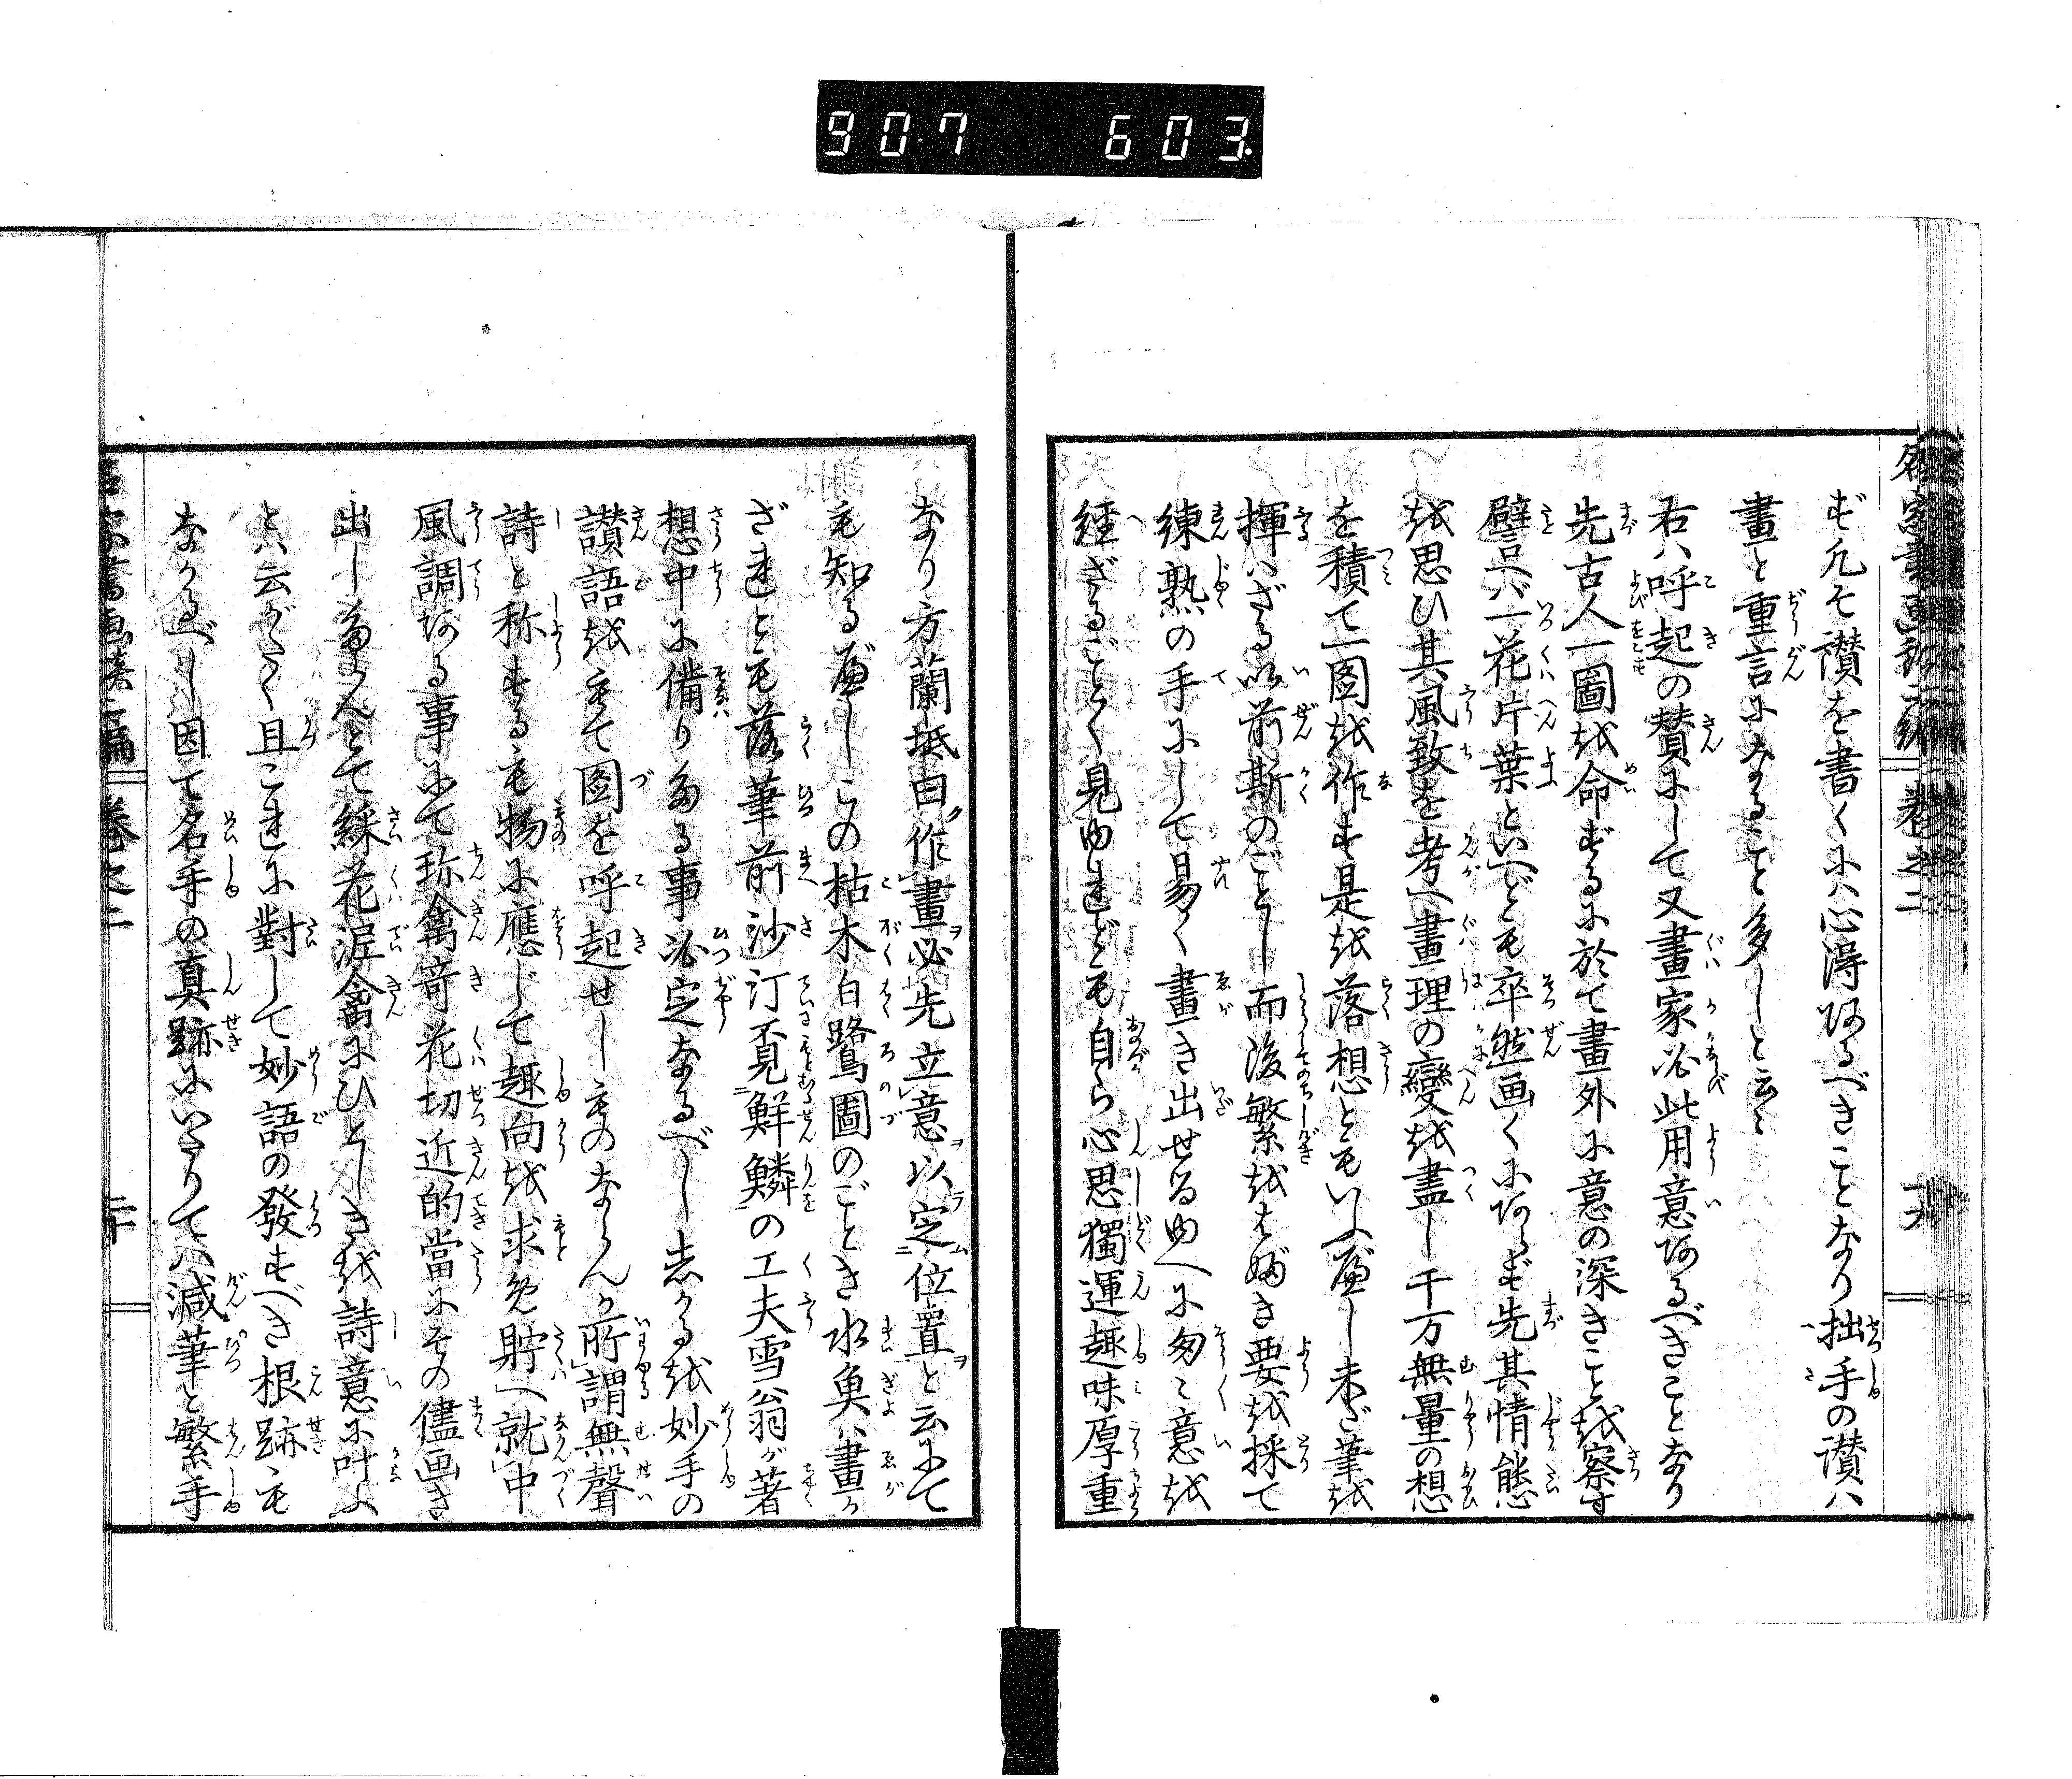 907 603
名家書画談二編 巻之二 十九
ず凡そ讃を書くには心得あるべきことなり拙手の讃ハ
畫と重言になること多しと云々
右ハ呼起の賛にして又畫家必此用意あるべきことなり
先古人一圖を命ずるに於て畫外に意の深きことを察す
譬えバ一花片葉といへども卒然画くにあらず先其情態
を思ひ其風致を考へ畫理の變を盡し千万無量の想
を積て一図を作す是を落想ともいふ べし未ざ筆を
揮ハざる以前斯のごとし而後繁をはぶき要を採て
練熟の手にして易く畫き出せるゆへに匆々意を
經ざるごとく見ゆれども自ら心思獨運趣味厚重
なり方蘭坻曰作畫必先立意以定位置と云にて
も知るべしこの枯木白鷺圖のごとき水魚ハ畫か
ざれども落筆前沙汀覔鮮鱗の工夫雪翁が著
想中に備りある事必定なるべし志かるを妙手の
讃語をもて図を呼起せしものならんか所謂無聲
詩と称するも物に應じて趣向を求め貯へ就中
風調ある事にて珎禽竒花切近的當にその儘画き
出しあらんとて綵花渥禽にひとしきを詩意に叶ふ
とハ云がたく且これに對して妙語の發すべき根跡も
なかるべし因て名手の真跡にいたりてハ減筆と繁手
名家書画談二編 巻之二 二十